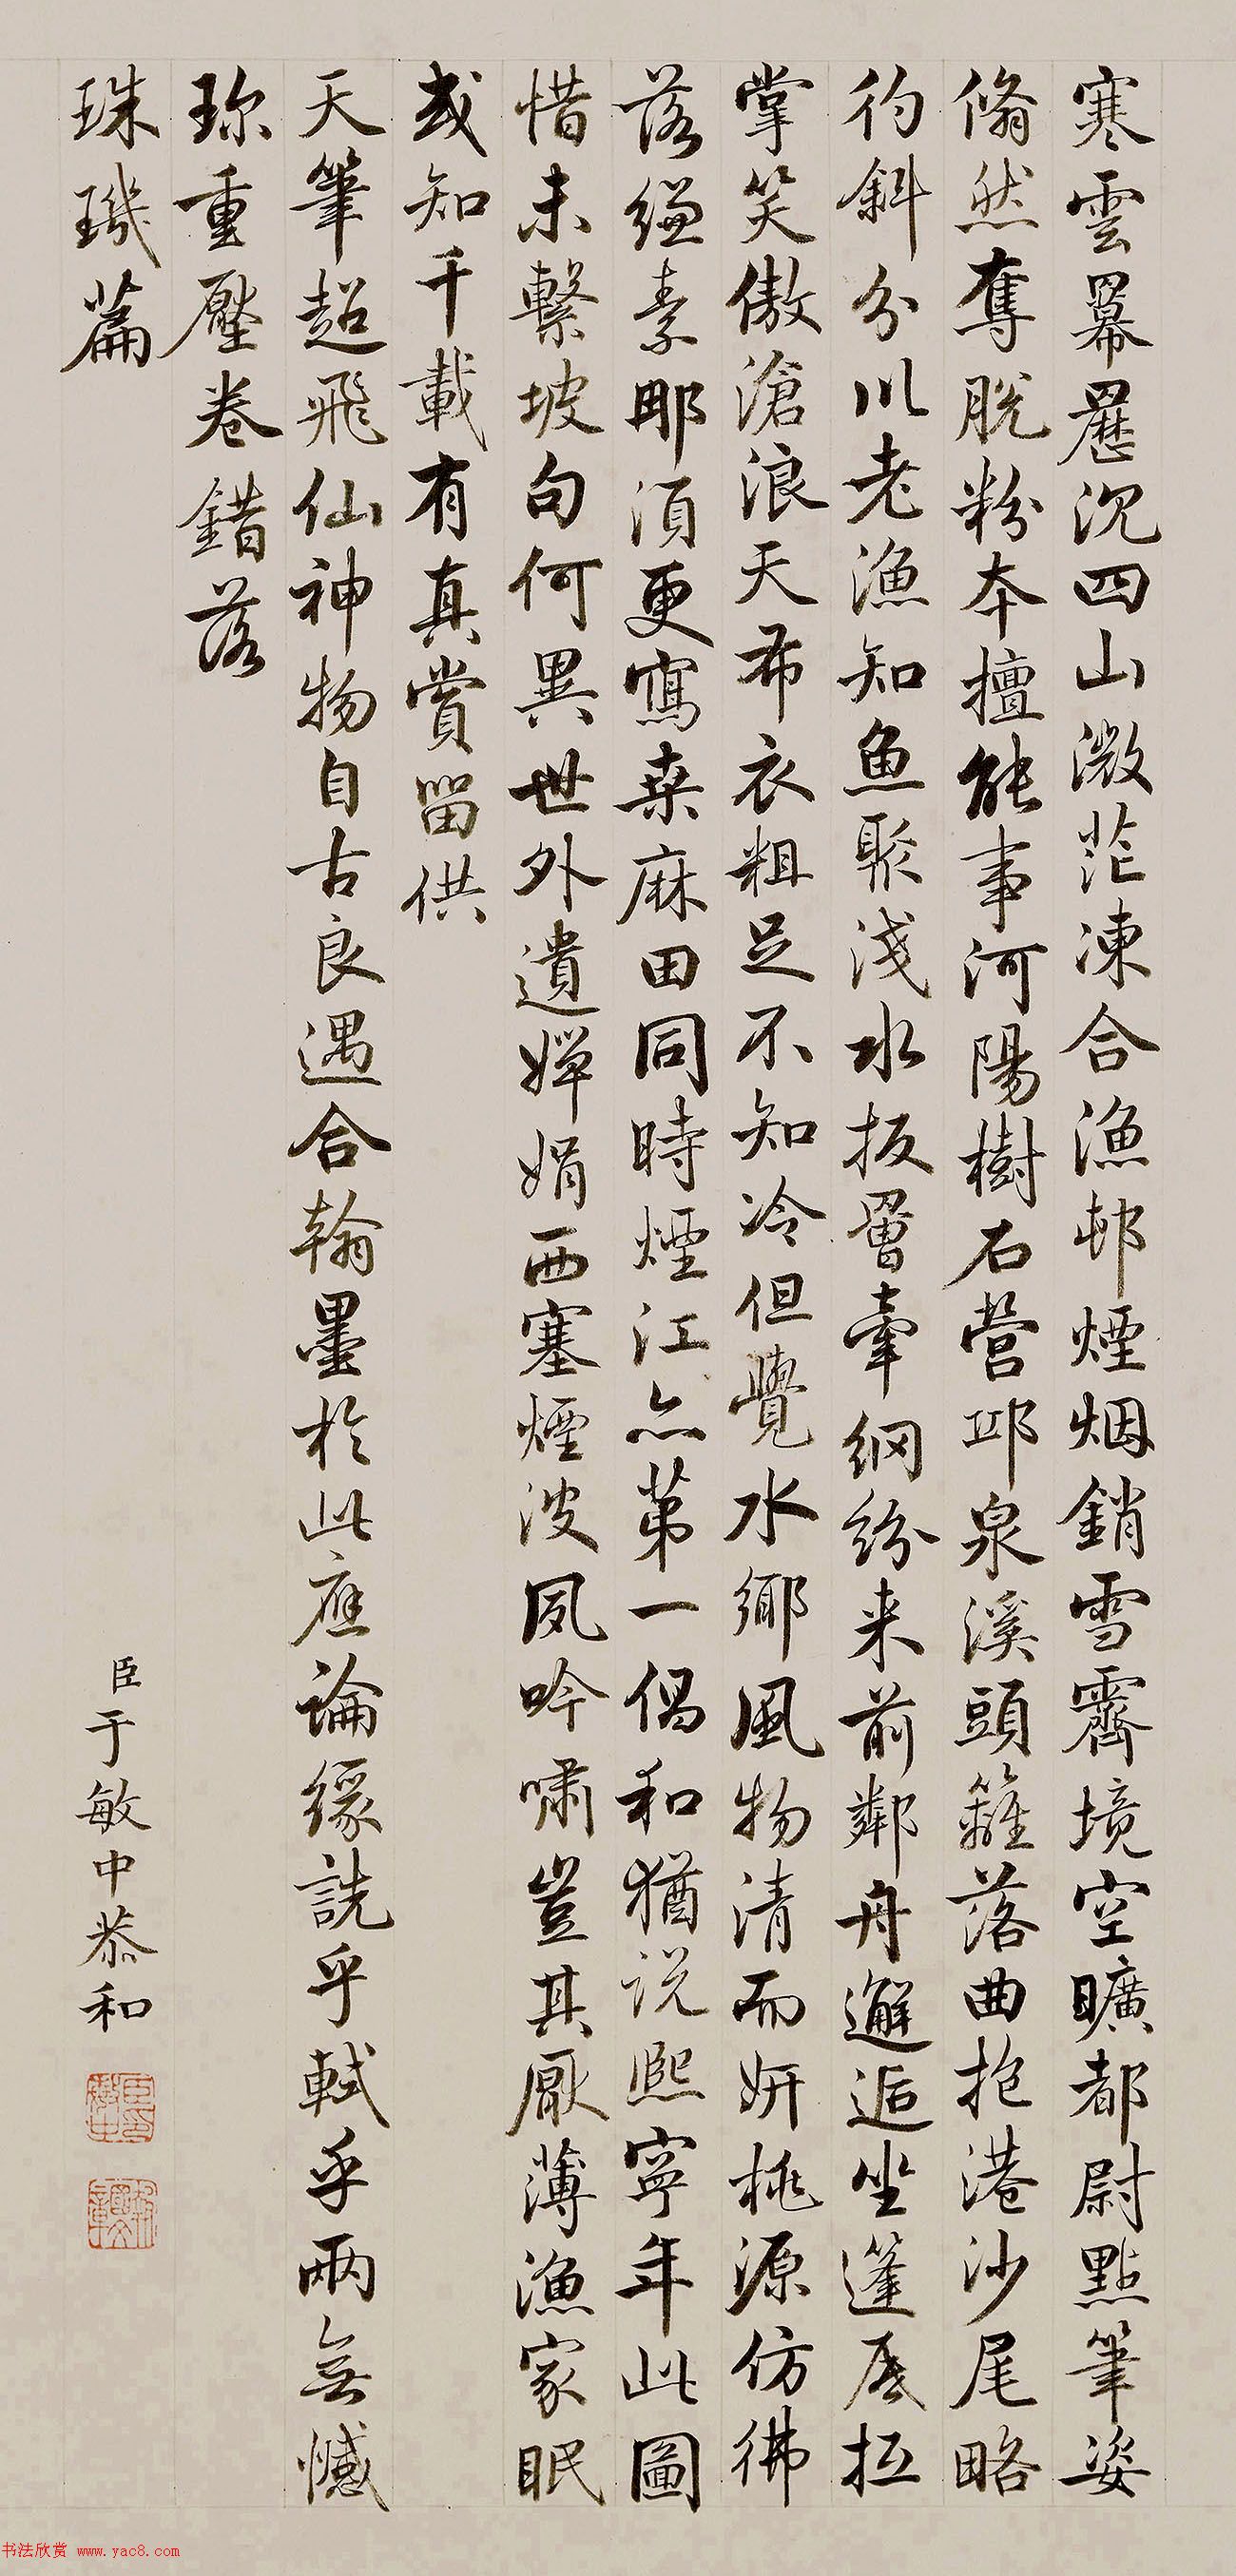 寒雲羃䍥沉四山微茫凍合漁邨煙烟銷雪霽境空曠都尉點筆姿
翛然奪脫粉本擅能事河陽樹石營邱泉溪頭籬落曲抱港沙尾略
彴斜分川老漁知魚聚淺水扳罾牽網紛来前鄰舟邂逅坐篷底抵
掌笑傲滄浪天布衣粗足不知冷但覺水鄉風物清而妍桃源仿彿
落縑素那須更寫桒麻田同時煙江亦苐一偶和猶説熙寧年此圖
惜未繫坡句何異世外遺嬋娟西塞煙波夙吟嘯豈其厭薄漁家眠
或知千載有真賞留供
天筆超飛仙神物自古良遇合翰墨於此應論緣詵乎軾乎兩無憾
珎重壓卷錯落
珠璣篇
臣于敏中恭和
书法欣赏 www.yac8.com